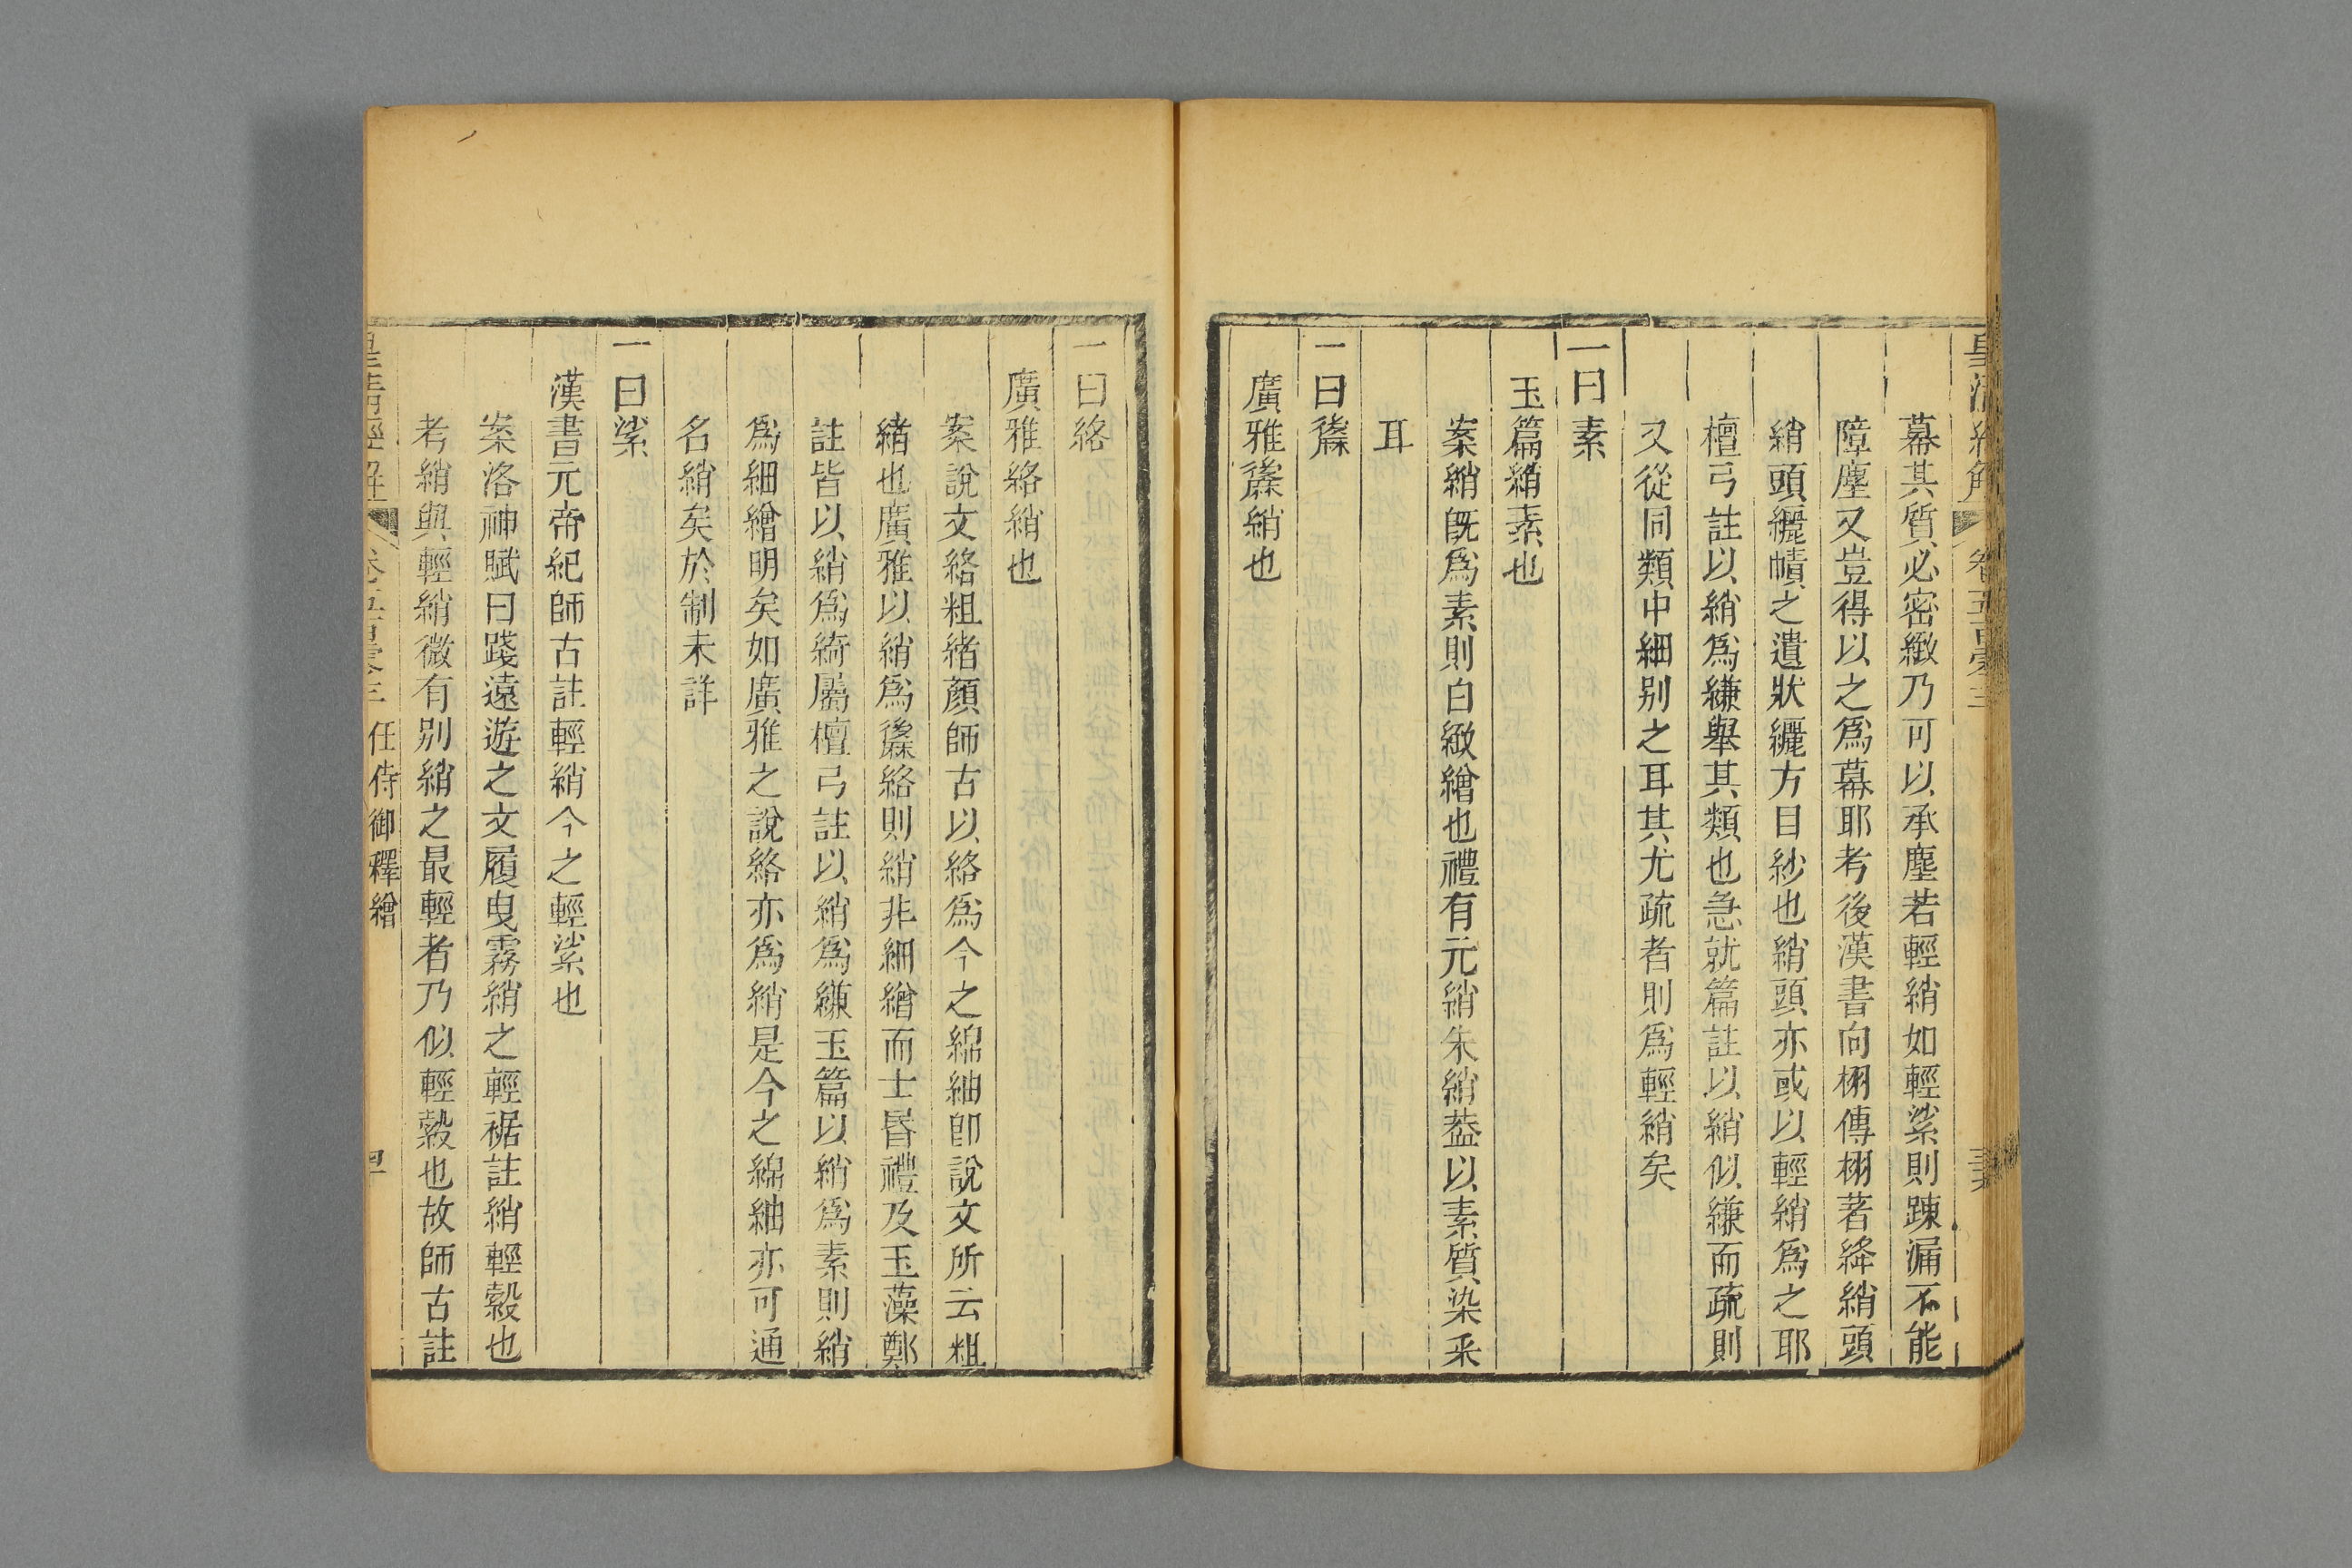 幕其質必密緻乃可以承塵若輕綃如輕紗則踈漏不能
障塵又豈得以之爲幕耶考後漢書向栩傳栩著絳綃頭
綃頭纚幘之遺狀纚方目紗也綃頭亦或以輕綃爲之耶
檀弓註以綃爲縑舉其類也急就篇註以綃似縑而疏則
又從同類中細别之耳其尤疏者則爲輕綃矣
一曰素
玉篇綃素也
案綃既爲素則白緻繒也禮有元綃朱綃葢以素質染采
耳
一曰
廣雅綃也
一曰絡
廣雅絡綃也
案說文絡粗緒顏師古以絡爲今之綿紬卽說文所云粗
緒也廣雅以綃爲絡則綃非細繒而士昏禮及玉藻鄭
註皆以綃爲綺屬檀弓註以綃爲縑玉篇以綃爲素則綃
爲細繒明矣如廣雅之說絡亦爲綃是今之綿紬亦可通
名綃矣於制未詳
一曰紗
漢書元帝紀師古註輕綃今之輕紗也
案洛神賦曰踐遠遊之文履曳霧綃之輕裾註綃輕縠也
考綃與輕綃微有别綃之最輕者乃似輕縠也故師古註
任侍御釋繒